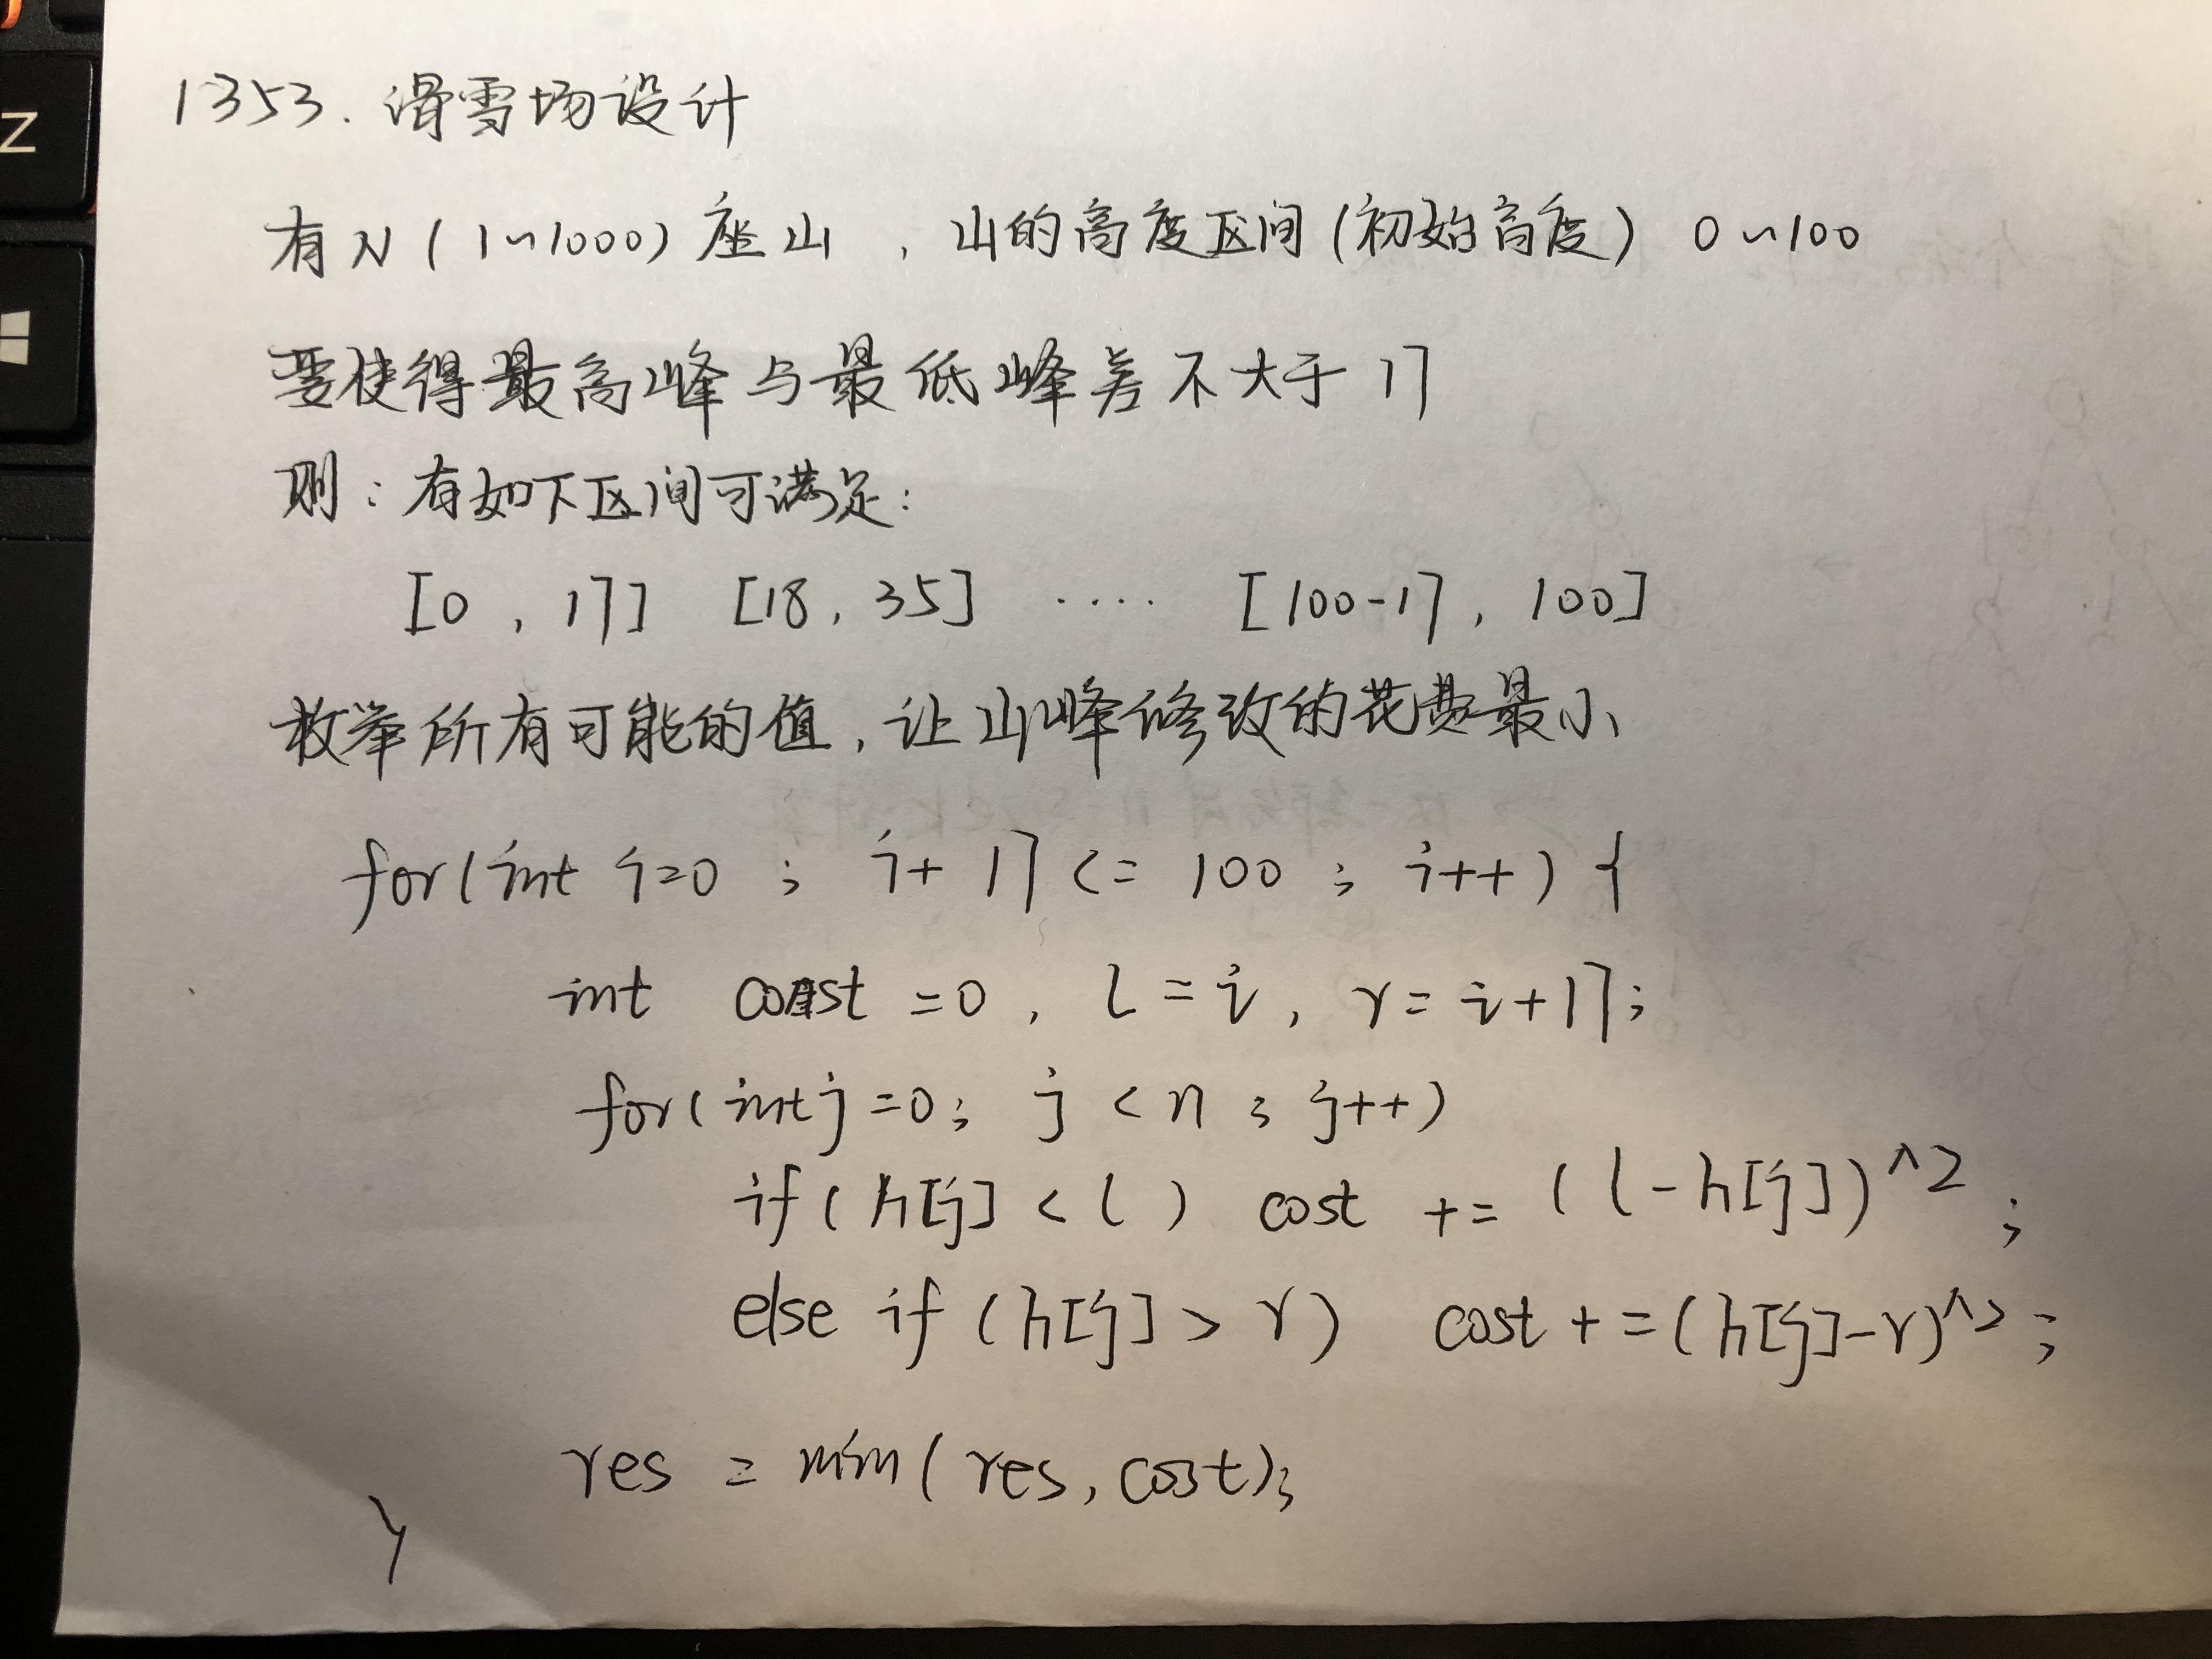 Z
1353. 滑雪场设计
有N(1~1000)座山，山的高度区间(初始高度) 0~100
要使得最高峰与最低峰差不大于17
则：有如下区间可满足：
[0, 17] [18, 35] .... [100-17, 100]
枚举所有可能的值，让山峰修改的花费最小
for(int i=0 ; i+17 <= 100 ; i++) {
int cost =0, l=i, r=i+17;
for(int j=0; j<n ; j++)
if(h[j] < l) cost += (l-h[j])^2 ;
else if (h[j] > r) cost += (h[j]-r)^2 ;
res = min(res, cost);
}